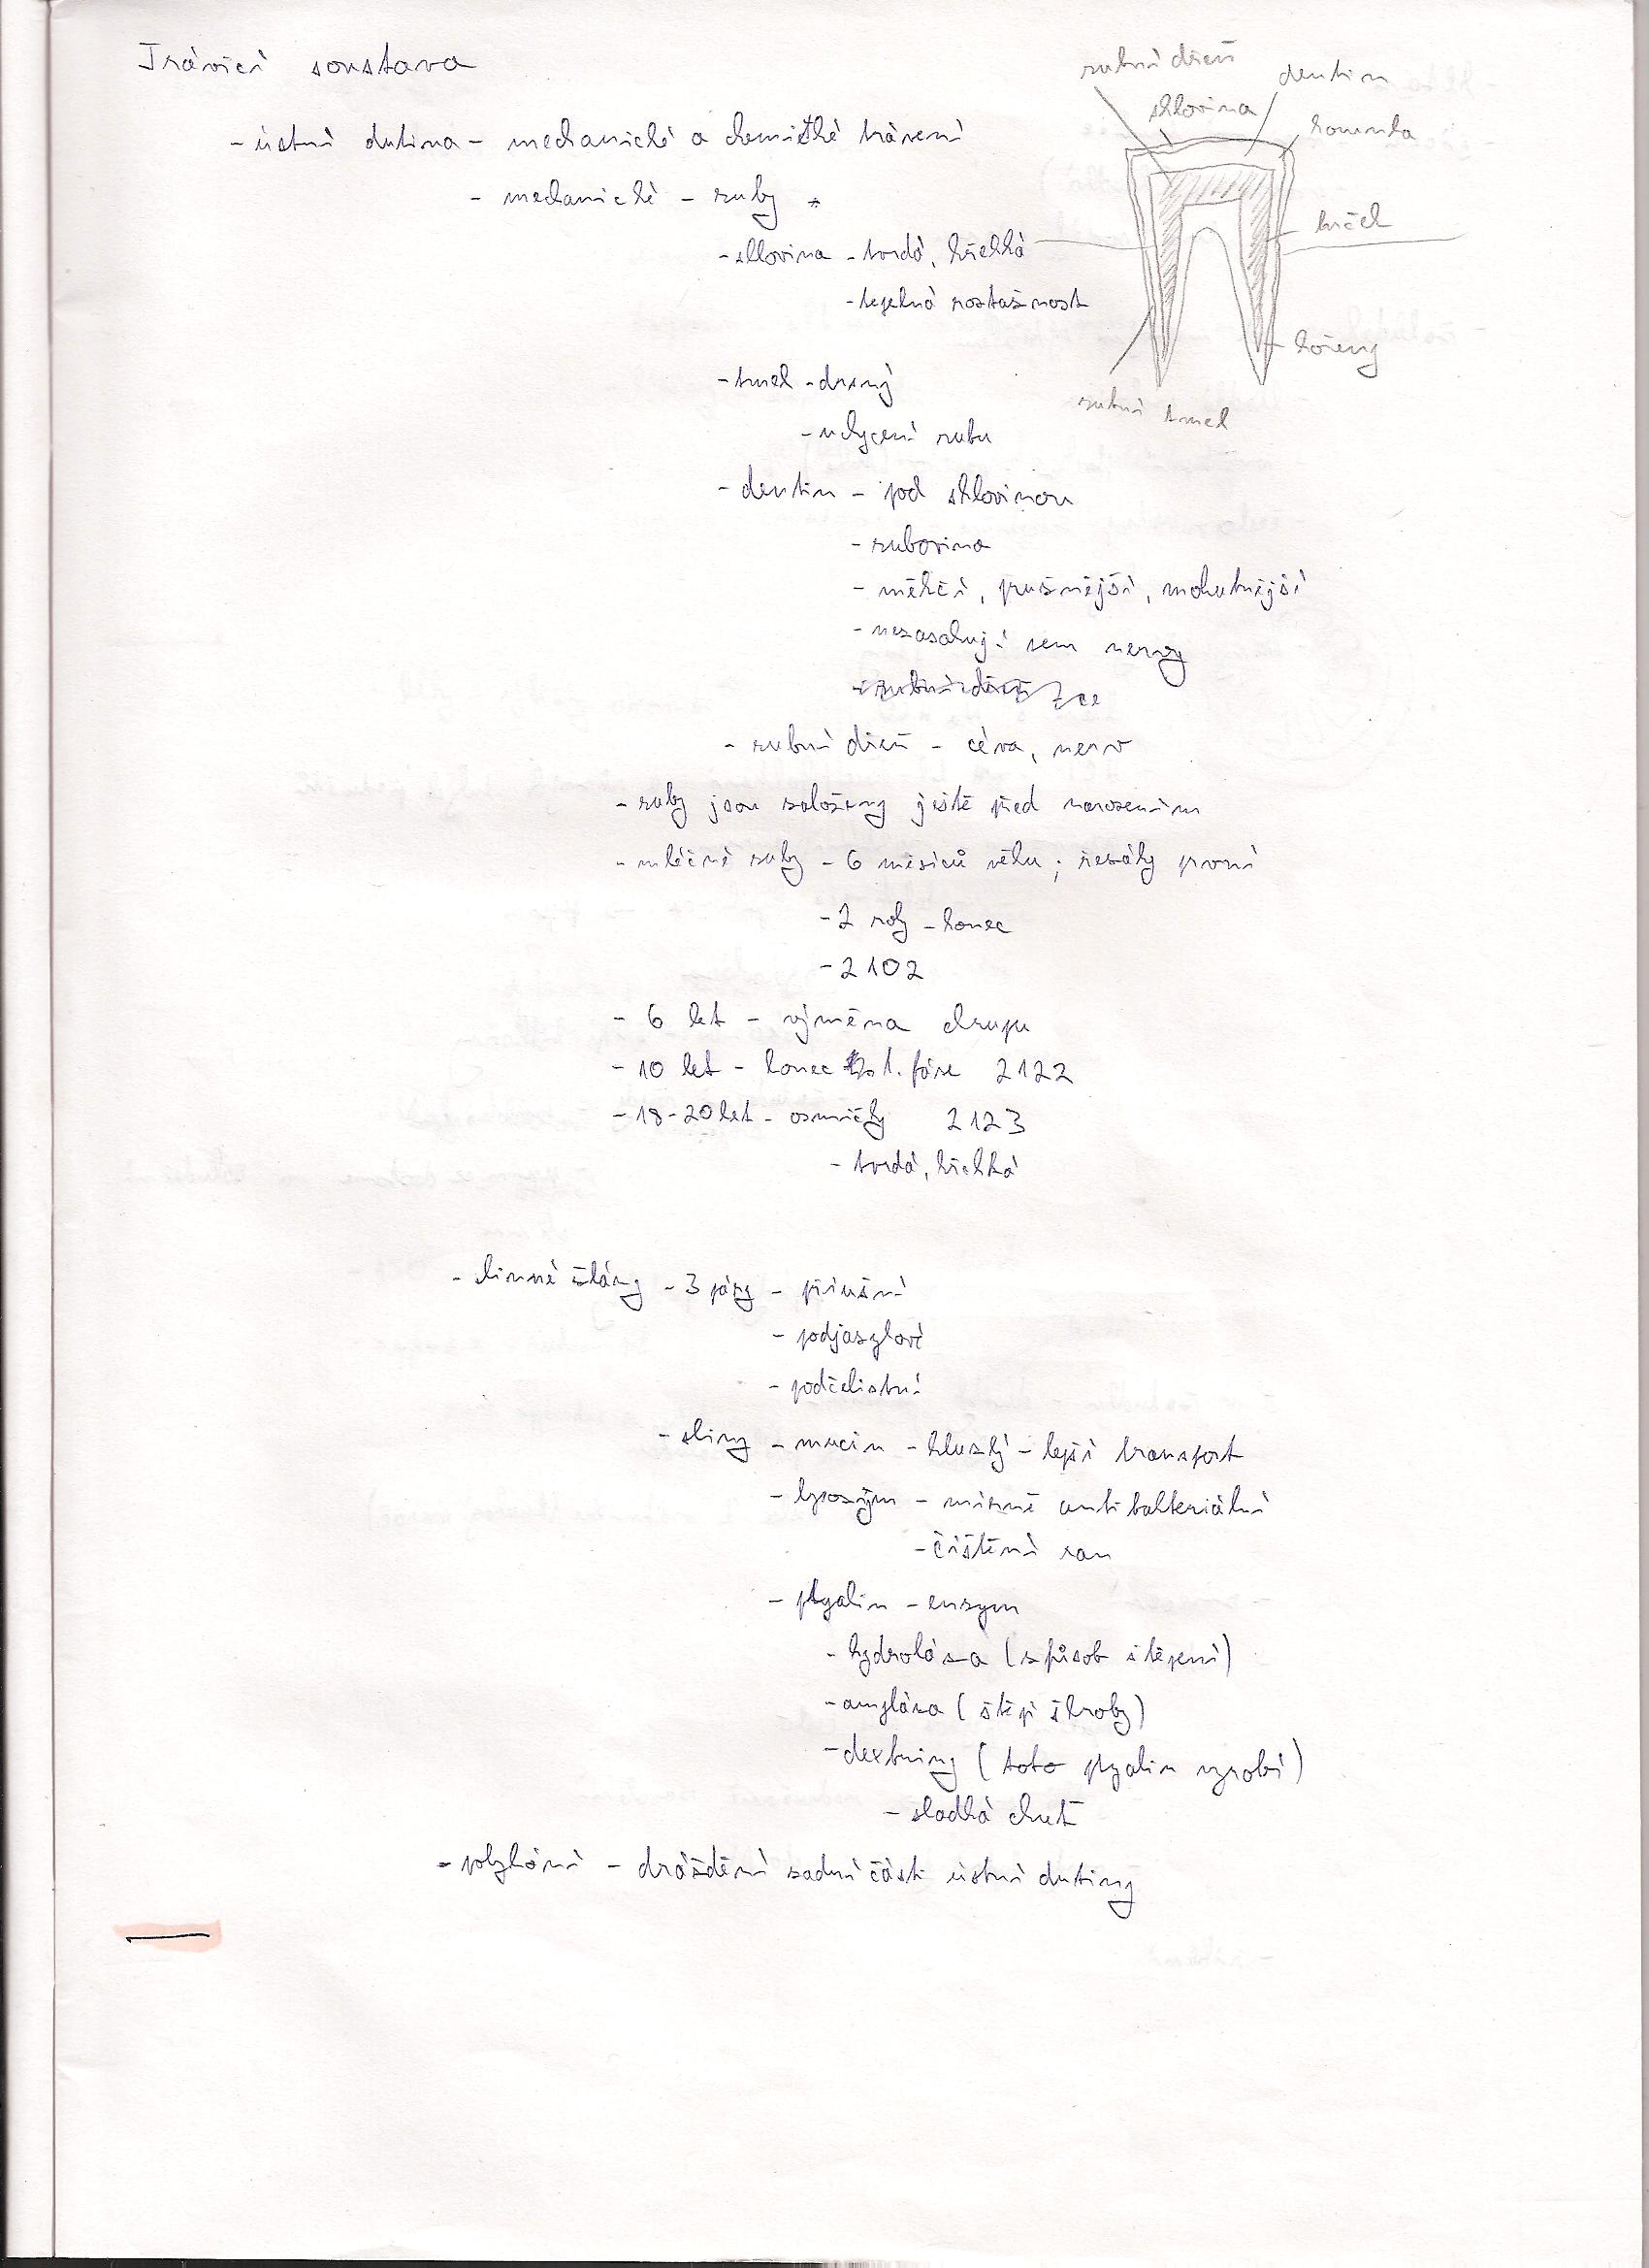 Trávicí soustava
zubní dřeň
dentin
sklovina
korunka
krček
kořeny
zubní tmel
- ústní dutina - mechanické a chemické trávení
- mechanické - zuby
- sklovina - tvrdá, křehká
- tepelná roztažnost
- tmel - drsný
- uchycení zubu
- dentin - pod sklovinou
- zubovina
- měkčí, pružnější, mohutnější
- nezasahují sem nervy
- zubní dřeň - céva, nerv
- zuby jsou založeny ještě před narozením
- mléčné zuby - 6 měsíců věku; řezáky první
- 2 roky - konec
- 2102
- 6 let - výměna chrupu
- 10 let - konec 1. fáze 2122
- 18-20 let - osmičky 2123
- tvrdá, křehká
- slinné žlázy - 3 páry - příušní
- podjazykové
- podčelistní
- sliny - mucin - kluzký - lepší transport
- lyozým - mírně antibakteriální
- čištění ran
- ptyalin - enzym
- hydroláza (způsob štěpení)
- amyláza (štěpí škroby)
- dextriny (toto ptyalin vyrobí)
- sladká chuť
- polykání - dráždění zadní části ústní dutiny